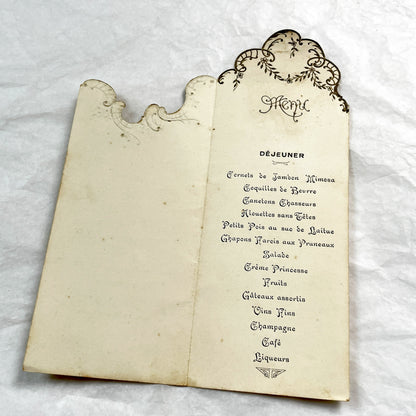 Menu
DÉJEUNER
Cornets de Jambon Mimosa
Coquilles de Beurre
Canetons Chasseurs
Alouettes sans Têtes
Petits Pois au suc de Laitue
Chapons Farcis aux Pruneaux
Salade
Crème Princesse
Fruits
Gâteaux assortis
Vins Fins
Champagne
Café
Liqueurs